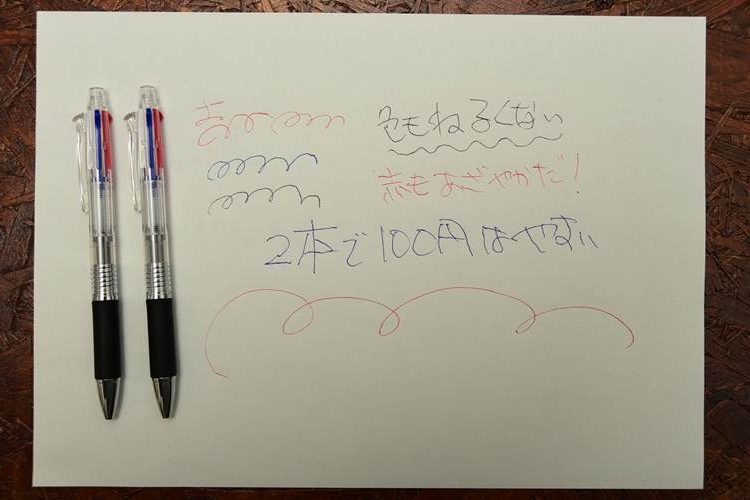 色もわるくない
赤もあざやかだ!
2本で100円はやすい